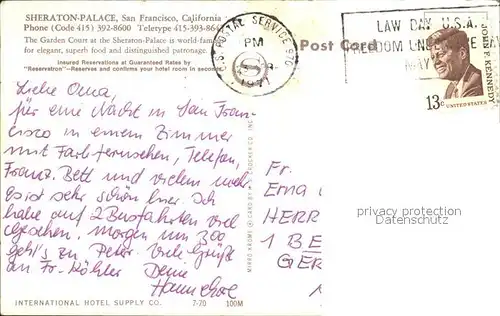 SHERATON-PALACE, San Francisco, California
Phone (Code 415) 392-8600 Teletype 415-393-86
The Garden Court at the Sheraton-Palace is world-fam
for elegant, superb food and distinguished patronage.
Insured Reservations at Guaranteed Rates by
"Reservatron"—Reserves and confirms your hotel room in seconds.
U.S. POSTAL SERVICE 970
PM
1971
Post Card
LAW DAY U.S.A.
FREEDOM UN
MAY
JOHN F. KENNEDY
13c
UNITED STATES
Liebe Oma,
für eine Nacht in San Fran-
cisco in einem Zimmer
mit Farbfernsehen, Telefon,
Franz. Bett und vielem mehr
Es ist sehr schön hier. Ich
habe auf 2 Busfahrten viel
gesehen. Morgen um 300
geht's zu Peter. Viele Grüße
an Fr. Köhler Deine
Hannelore
MIRRO-KROME ® CARD BY H.S. CROCKER CO. INC.
Fr.
Erna
HERR
1 BE
GER
privacy protection
Datenschutz
INTERNATIONAL HOTEL SUPPLY CO. 7-70 100M